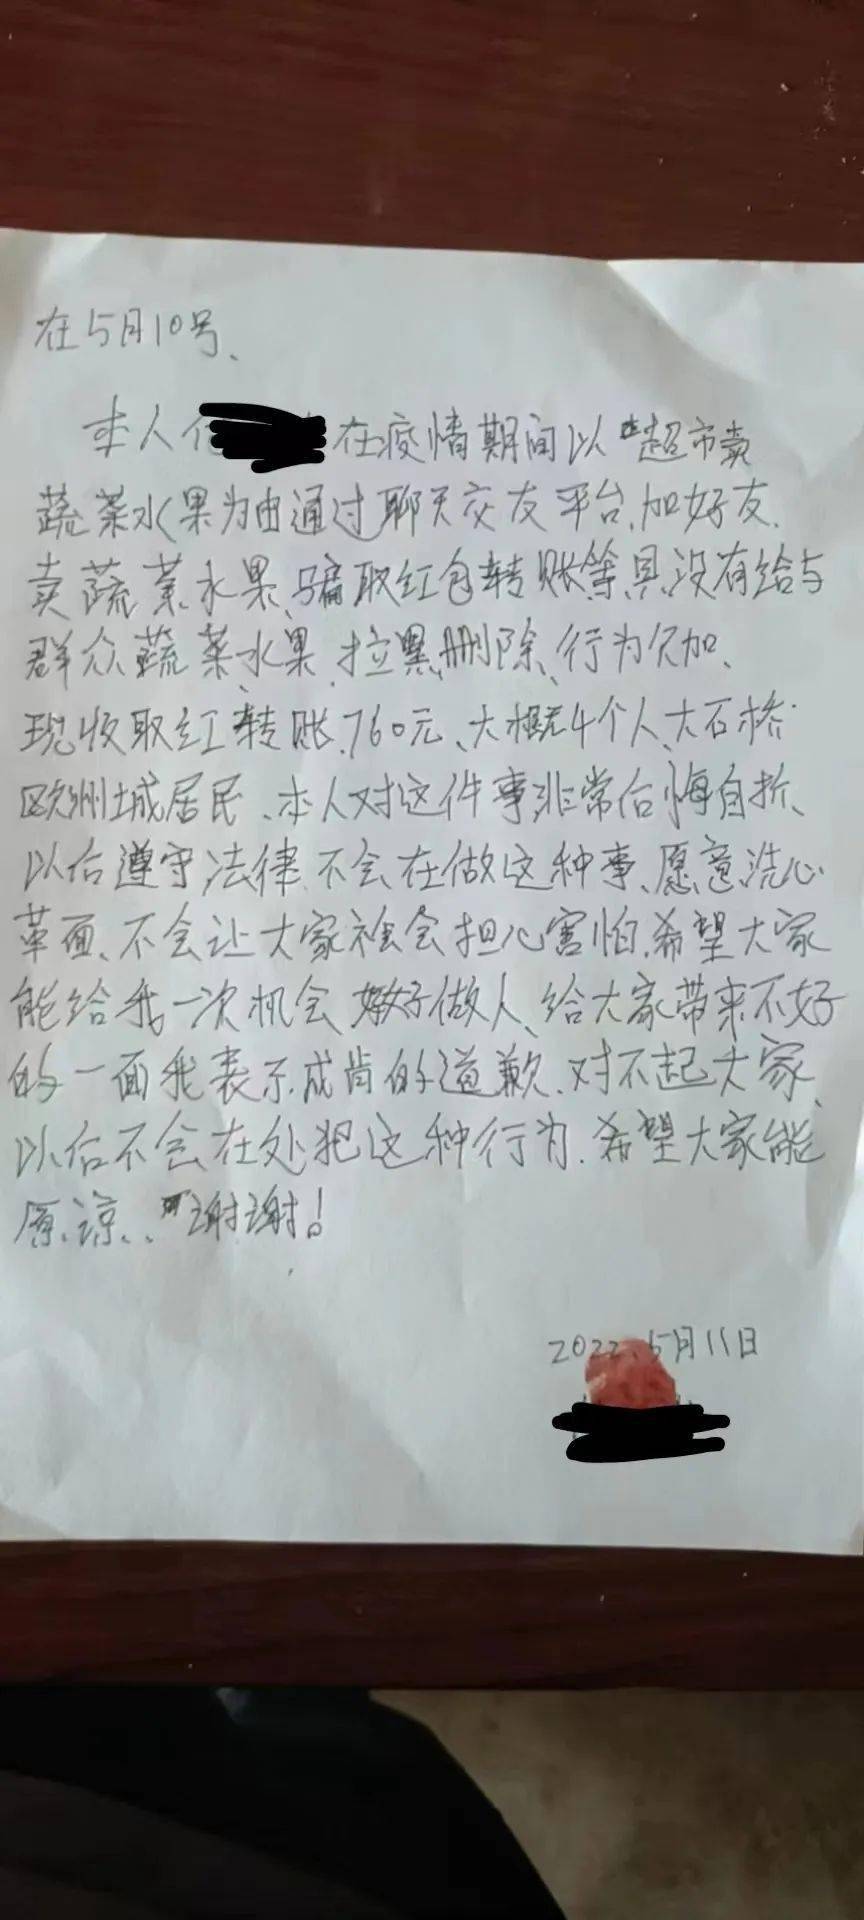 在5月10号、
本人 在疫情期间以超市卖
蔬菜水果为由通过聊天交友平台、加好友、
卖蔬菜、水果、骗取红包转账等、具没有给与
群众蔬菜、水果、拉黑、删除、行为欠加、
现收取红转账、760元、大概4个人、大石桥
欧洲城居民、本人对这件事非常后悔自折、
以后遵守法律、不会在做这种事、愿意洗心
革面、不会让大家社会担心害怕、希望大家
能给我一次机会 好好做人、给大家带来不好
的一面我表示成肯的道歉、对不起大家、
以后不会在处犯这种行为、希望大家能
原谅、、谢谢！
2022、5月11日